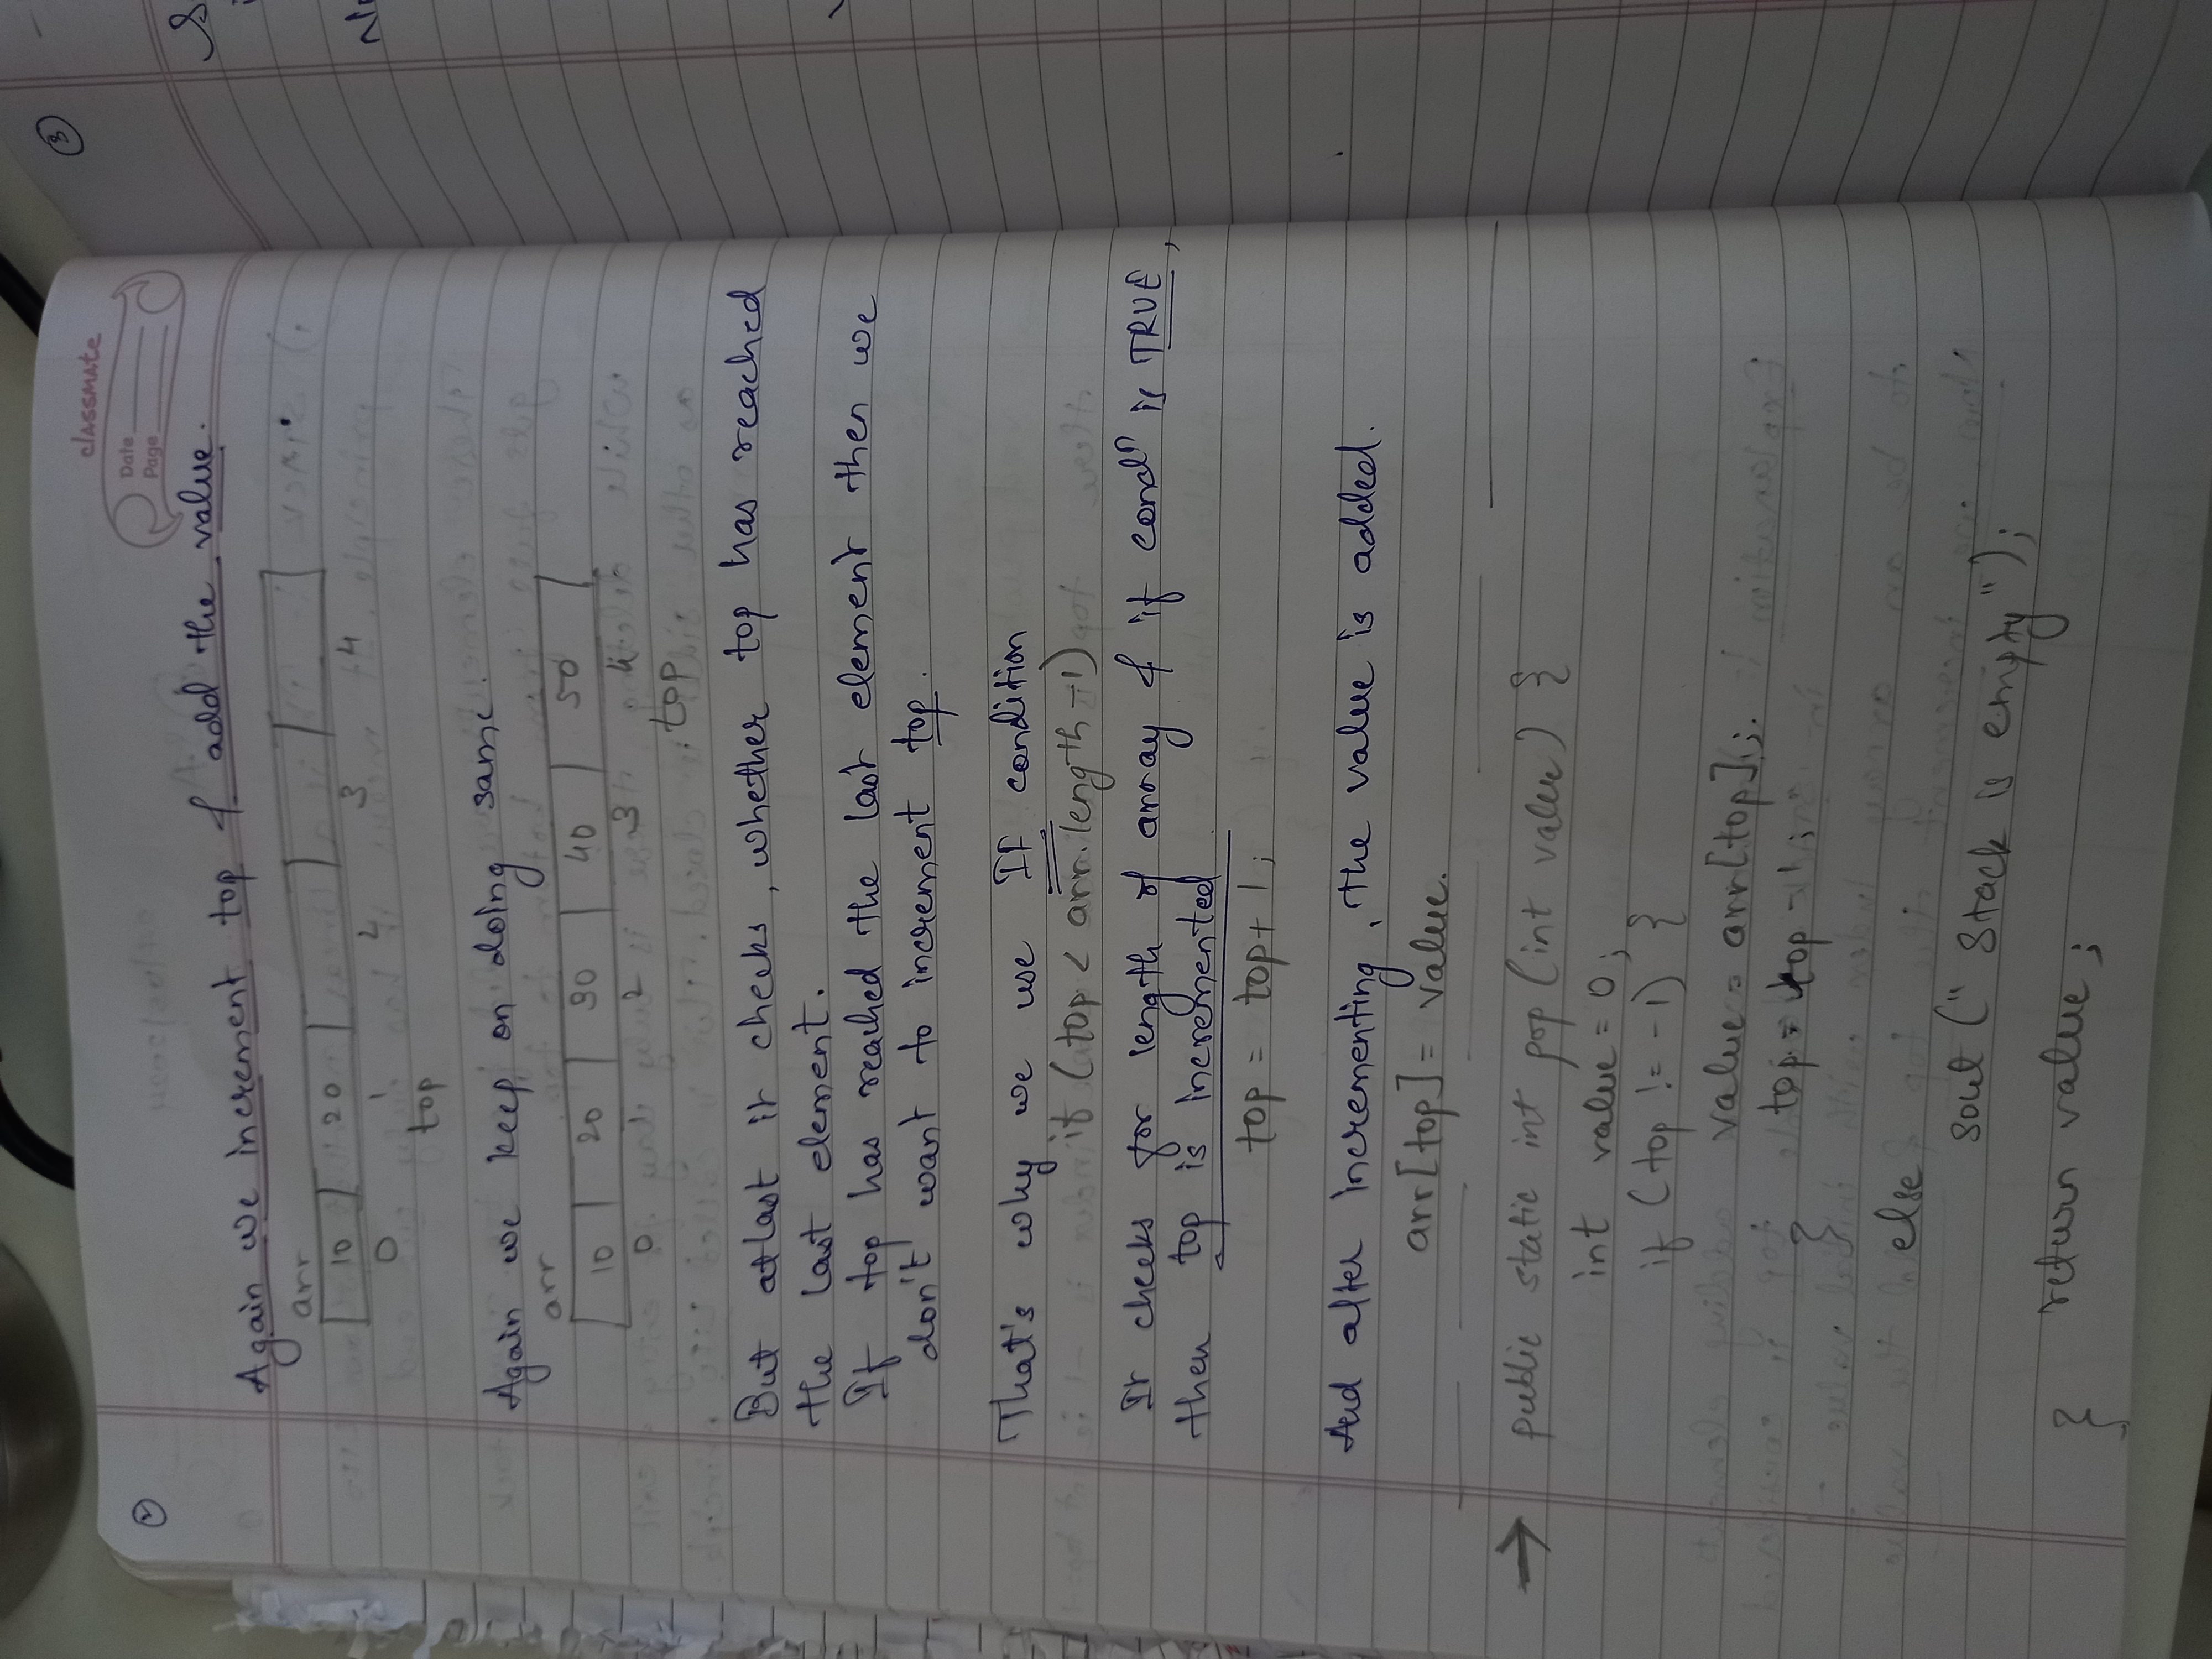 2
classmate
Date
Page
Again we increment top & add the value.
arr
10 20
0 1 2 3 4
top
Again we keep on doing same.
arr
10 20 30 40 50
0 1 2 3 4
top
But atlast it checks, whether top has reached
the last element.
If top has reached the last element then we
don't want to increment top.
That's why we use IF condition
if (top < arr.length-1)
It checks for length of array & if condⁿ is TRUE,
then top is incremented
top = top+1;
And after incrementing, the value is added.
arr[top] = value.
→ public static int pop (int value) {
int value = 0;
if (top != -1) {
value = arr[top];
top = top - 1;
}
else
sout (" Stack is empty");
return value;
}
3